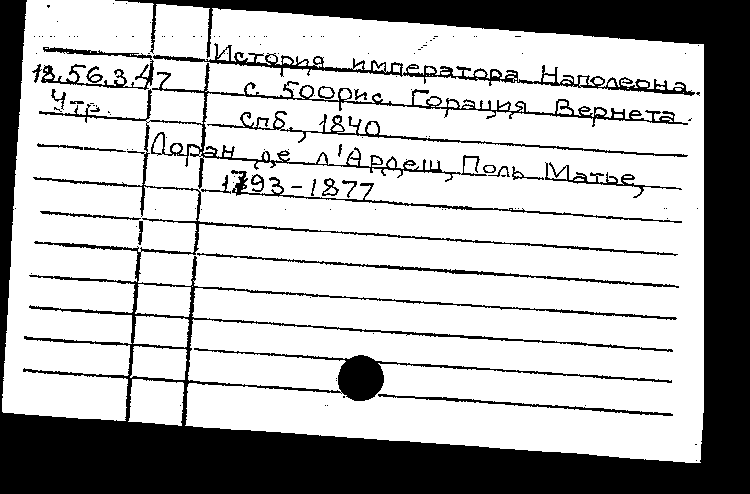 История императора Наполеона
18.56.3.47 с 500рис. Горация Вернета.
Утр. Спб., 1840
Лоран де л'Ардеш, Поль Матье,
1793-1877